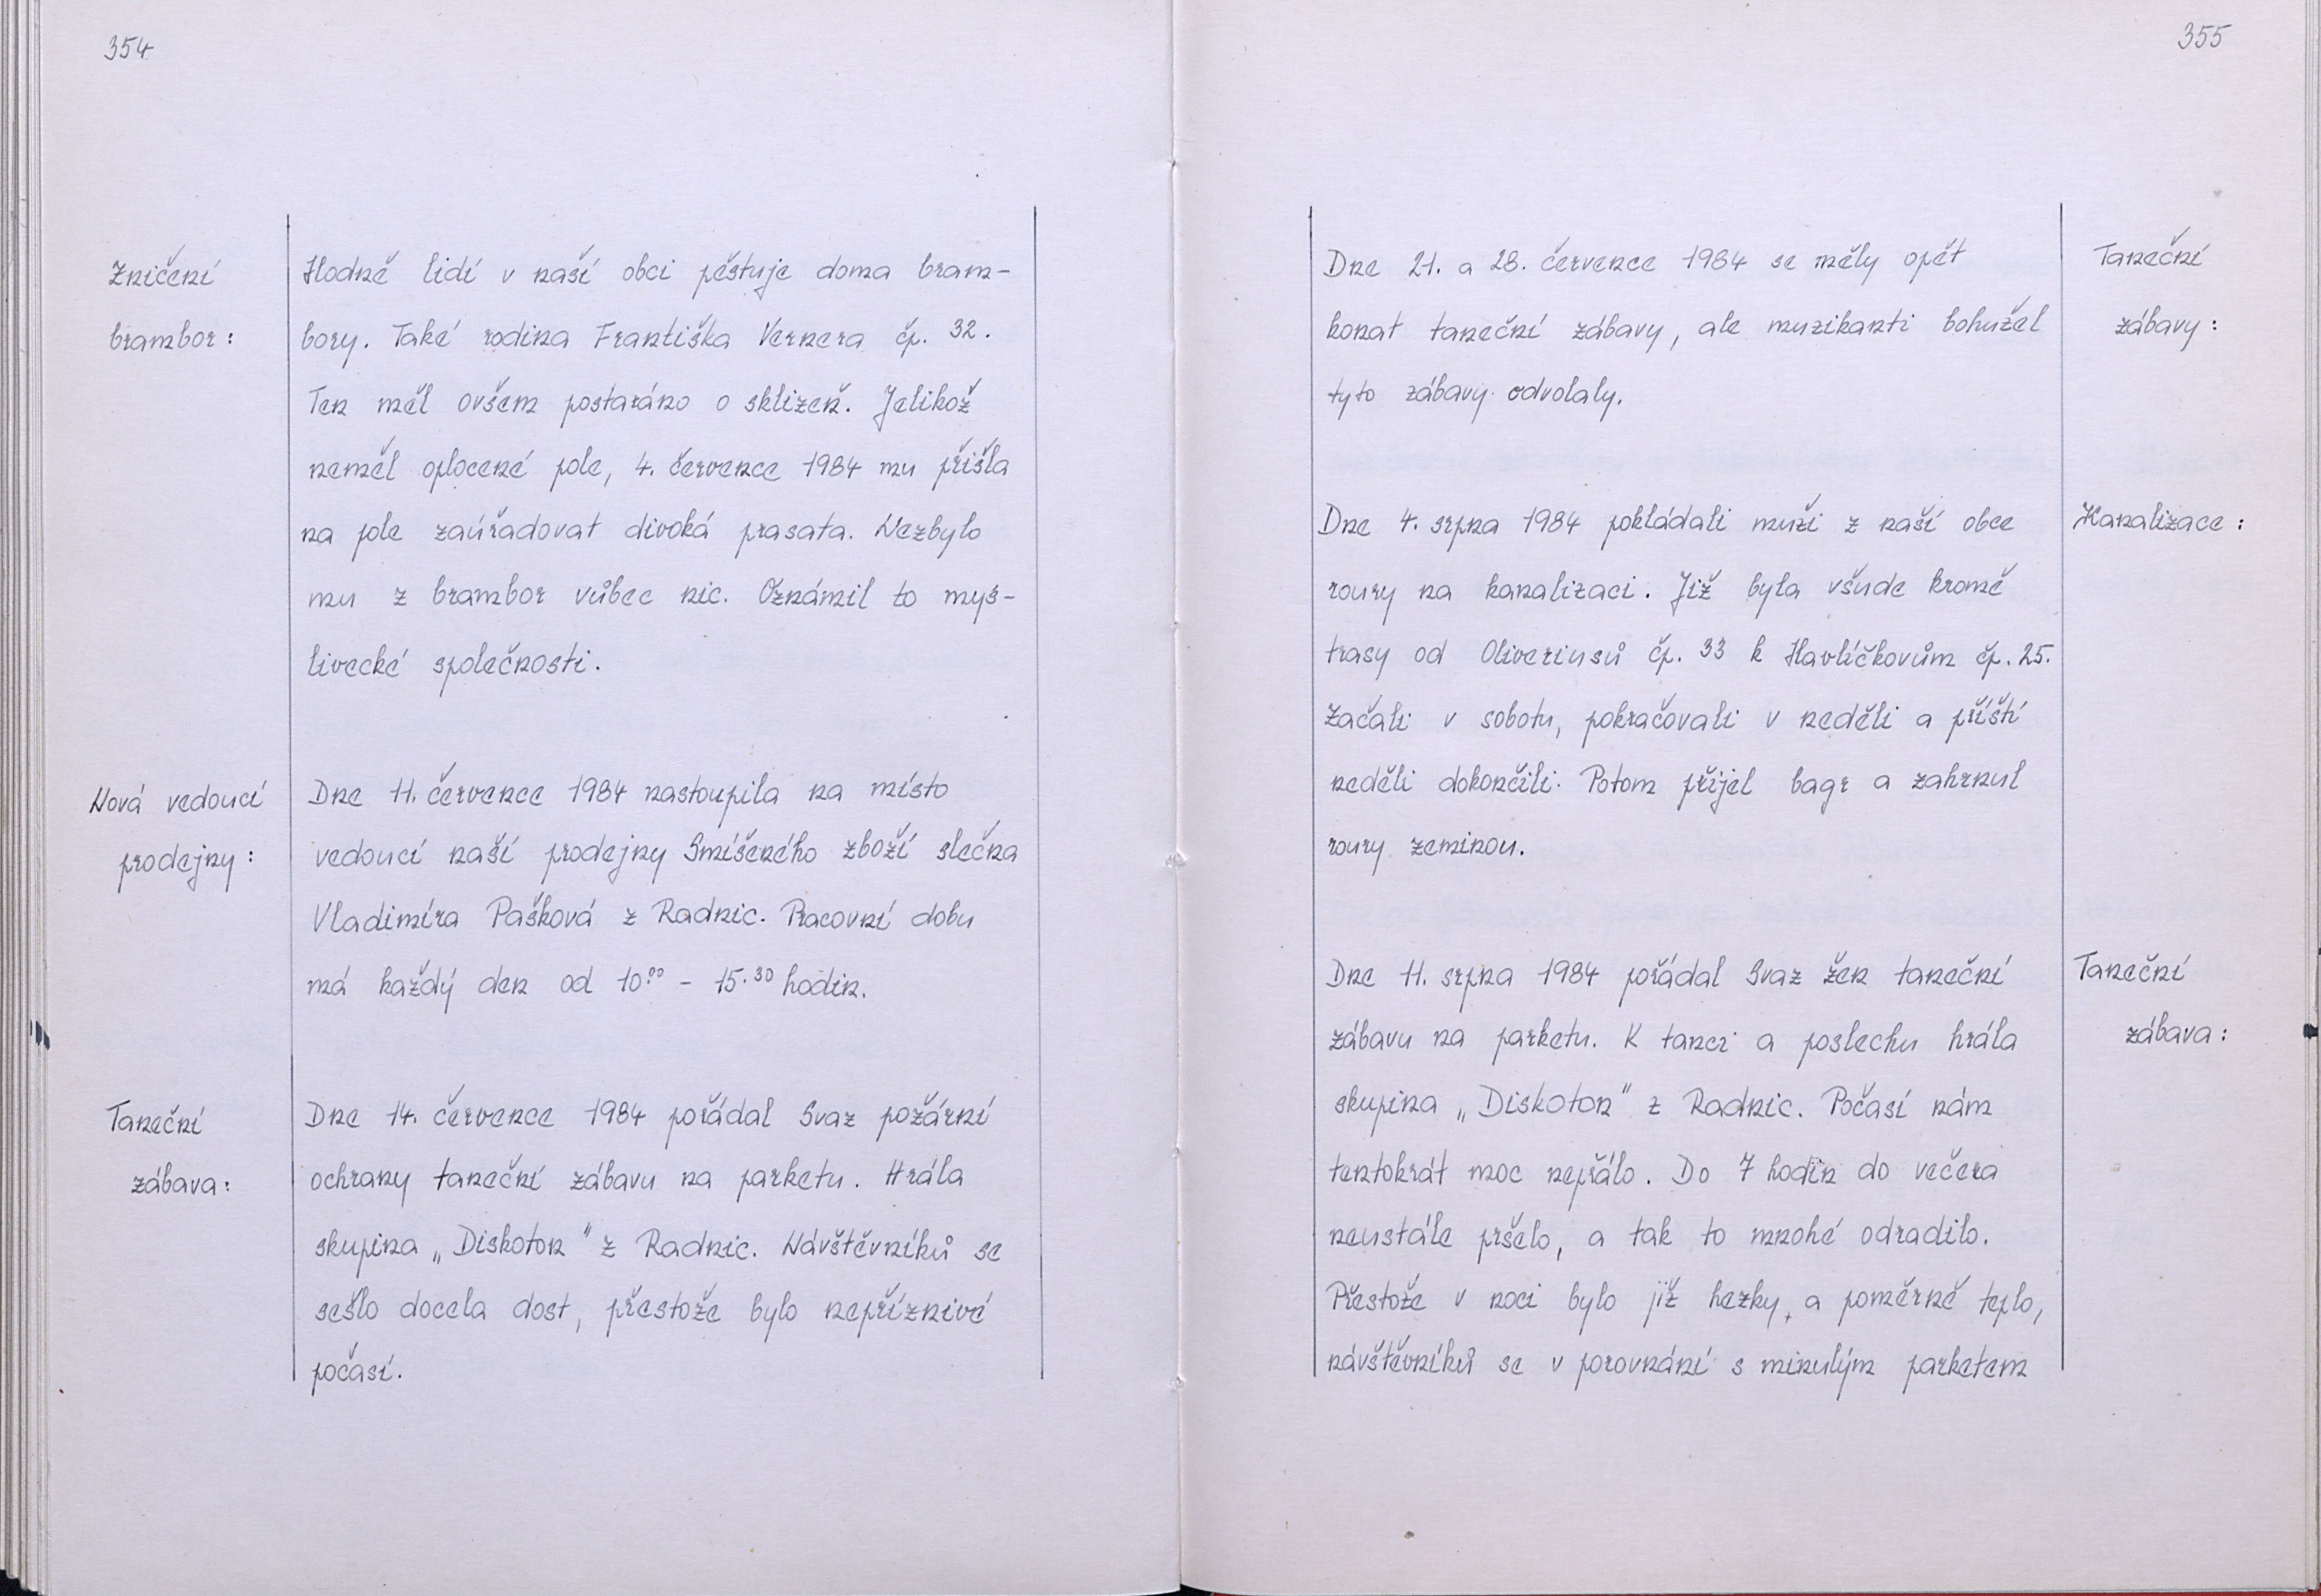 354
Zničení
brambor:
Hodně lidí v naší obci pěstuje doma bram-
bory. Také rodina Františka Vernera čp. 32.
Ten měl ovšem postaráno o sklizeň. Jelikož
neměl oplocené pole, 4. července 1984 mu přišla
na pole zaúřadovat divoká prasata. Nezbylo
mu z brambor vůbec nic. Oznámil to mys-
livecké společnosti.
Nová vedoucí
prodejny:
Dne 11. července 1984 nastoupila na místo
vedoucí naší prodejny Smíšeného zboží slečna
Vladimíra Pašková z Radnic. Pracovní dobu
má každý den od 10.00 - 15.30 hodin.
Taneční
zábava:
Dne 14. července 1984 pořádal Svaz požární
ochrany taneční zábavu na parketu. Hrála
skupina „Diskoton" z Radnic. Návštěvníků se
sešlo docela dost, přestože bylo nepříznivé
počasí.
355
Taneční
zábavy:
Dne 21. a 28. července 1984 se měly opět
konat taneční zábavy, ale muzikanti bohužel
tyto zábavy odvolaly.
Kanalizace:
Dne 4. srpna 1984 pokládali muži z naší obce
roury na kanalizaci. Již byla všude kromě
trasy od Oliveriusů čp. 33 k Havlíčkovům čp. 25.
Začali v sobotu, pokračovali v neděli a příští
neděli dokončili. Potom přijel bagr a zahrnul
roury zeminou.
Taneční
zábava:
Dne 11. srpna 1984 pořádal Svaz žen taneční
zábavu na parketu. K tanci a poslechu hrála
skupina „Diskoton" z Radnic. Počasí nám
tentokrát moc nepřálo. Do 7 hodin do večera
neustále pršelo, a tak to mnohé odradilo.
Přestože v noci bylo již hezky, a poměrně teplo,
návštěvníků se v porovnání s minulým parketem